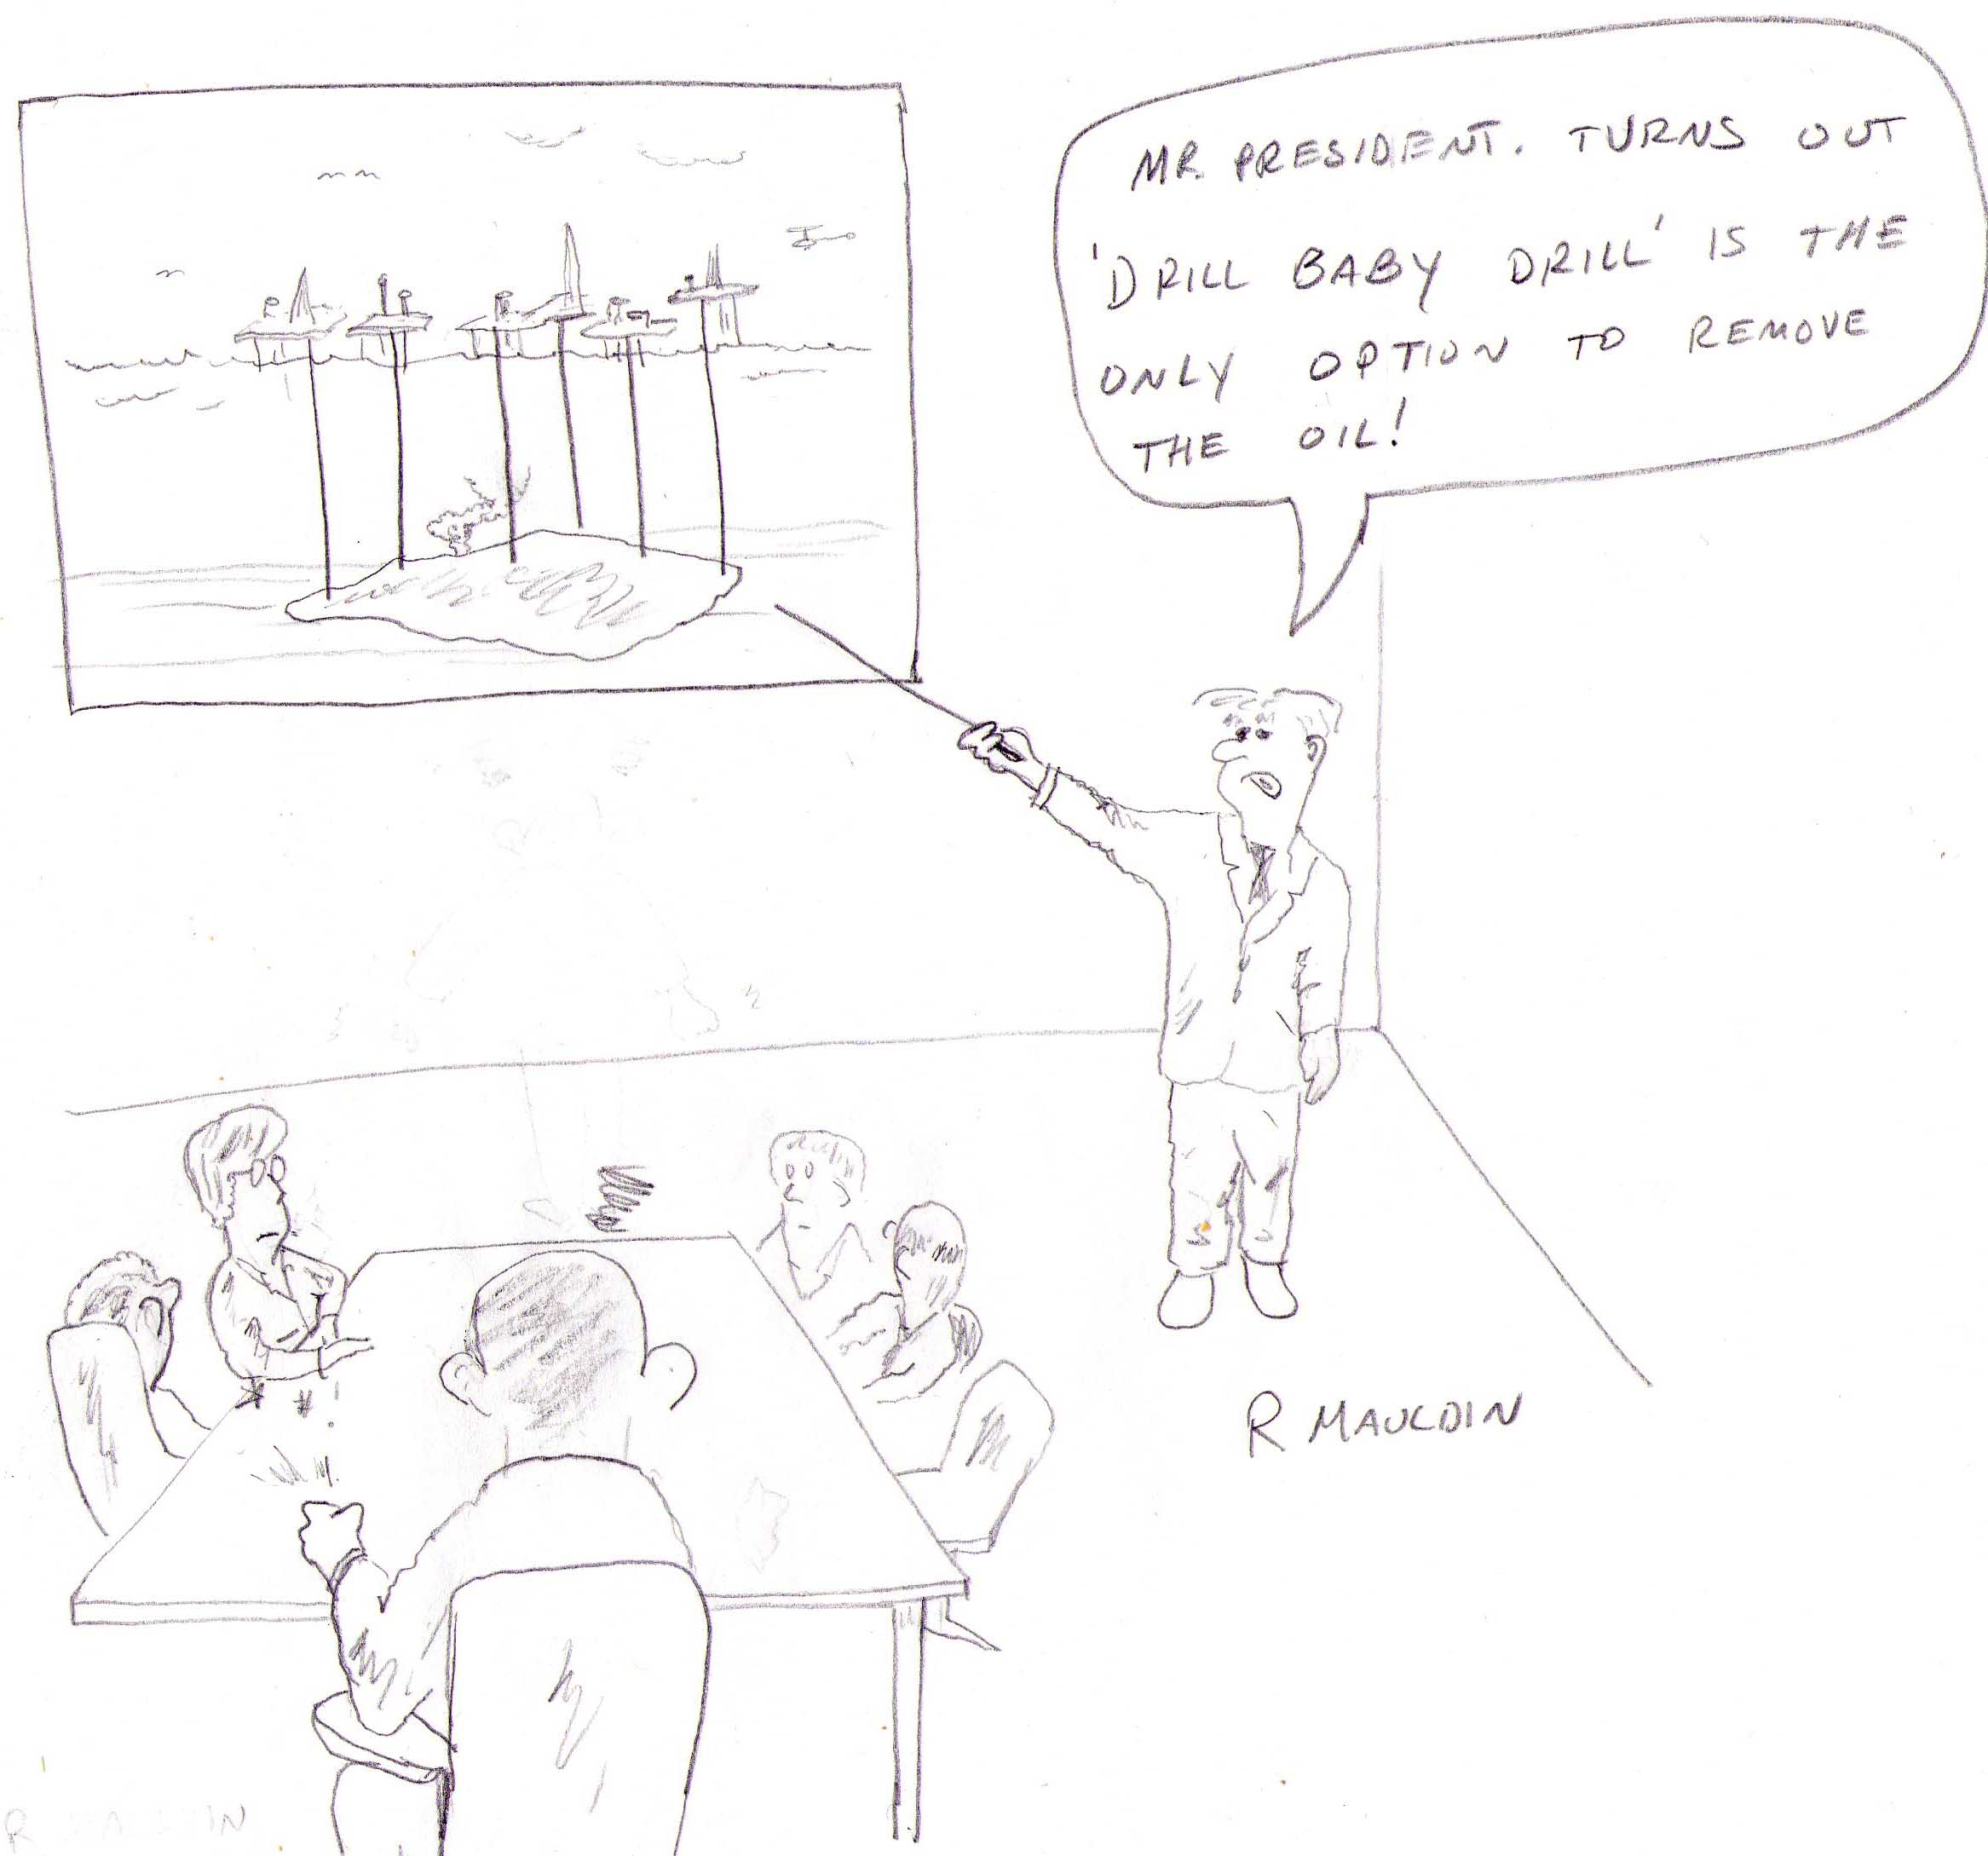 MR. PRESIDENT. TURNS OUT
'DRILL BABY DRILL' IS THE
ONLY OPTION TO REMOVE
THE OIL!
R MAULDIN